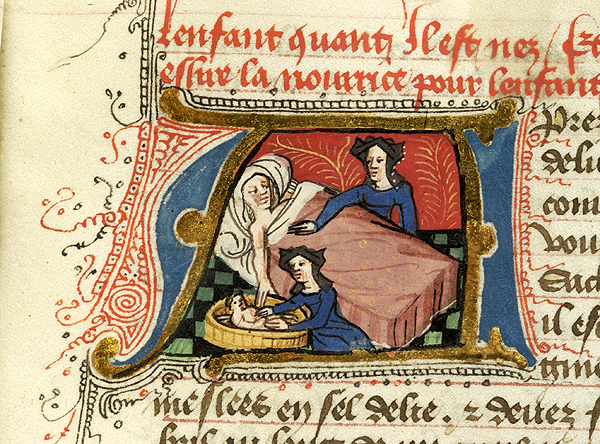 lenfant quant Il est nez Et
eslire la nourrice pour lenfant
A Pre
delic
com
vou
Sach
il est
gme
meslees en sel delie . z devez f